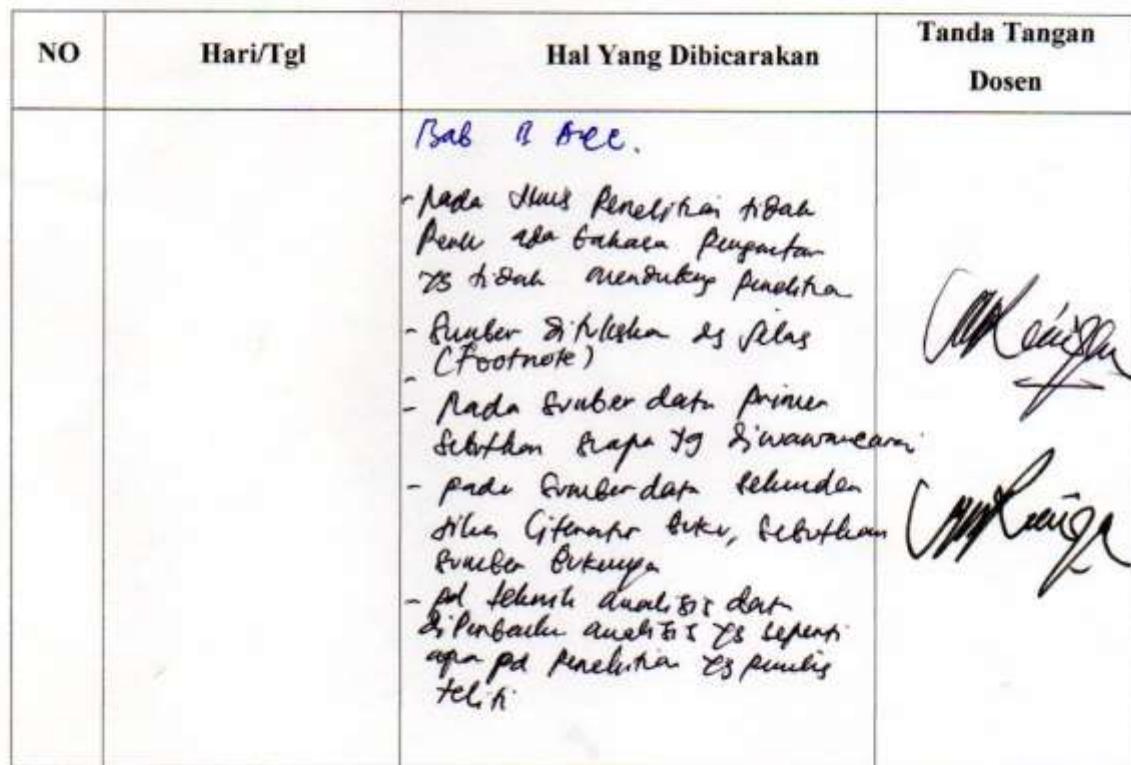 NO
Hari/Tgl
Hal Yang Dibicarakan
Tanda Tangan
Dosen
Bab II Acc.
- Pada Jenis Penelitian tidak
Perlu ada bahasa Pengantar
yg tidak mendukung penelitian
- Sumber dituliskan dg jelas
(Footnote)
-
- Pada Sumber data primer
Sebutkan siapa yg diwawancarai
- pada Sumber data sekunder
jika literatur buku, sebutkan
sumber bukunya
- pd teknik analisis data
diperbaiki analisis yg seperti
apa pd penelitian yg penulis
teliti